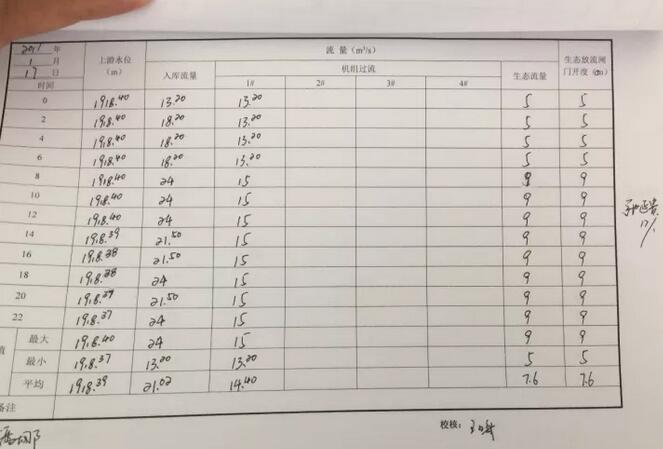 2011年 1月 17日 时间 上游水位(m) 流量(m³/s) 生态放流闸门开度(cm)
入库流量 机组过流 生态流量
1# 2# 3# 4#
0 1918.40 13.20 13.20 5 5
2 1918.40 18.20 13.20 5 5
4 1918.40 18.20 13.20 5 5
6 1918.40 18.20 13.20 5 5
8 1918.40 24 15 9 9
10 1918.40 24 15 9 9
12 1918.40 24 15 9 9
14 1918.39 21.50 15 9 9
16 1918.38 21.50 15 9 9
18 1918.38 24 15 9 9
20 1918.37 21.50 15 9 9
22 1918.37 24 15 9 9
值 最大 1918.40 24 15 9 9
最小 1918.37 13.20 13.20 5 5
平均 1918.39 21.02 14.40 7.6 7.6
备注
校核: